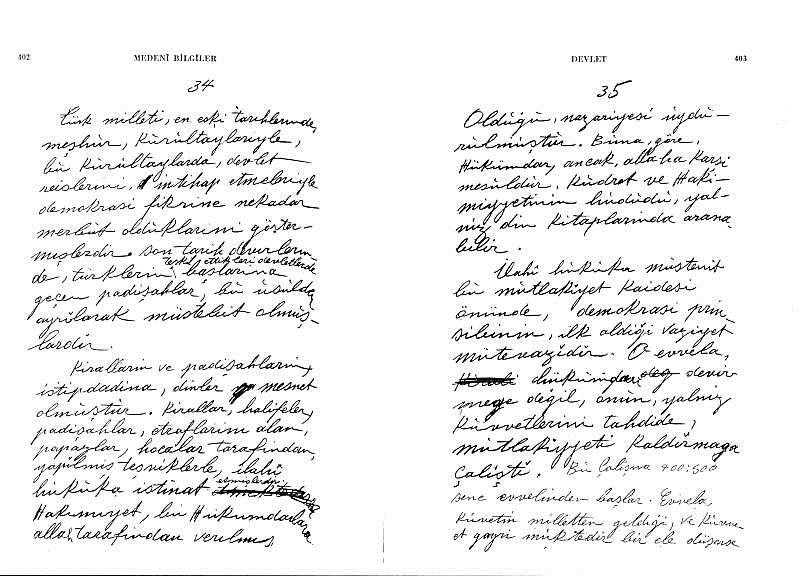 402
MEDENİ BİLGİLER
34
Türk milleti, en eski tarihlerinde,
meşhur, Kürültaylariyle,
bu Kürültaylarda, devlet
reislerini, intihap etmeleriyle
demokrasi fikrine nekadar
merbut olduklarini göster-
mişlerdir. Son tarih devirlerin-
de, türklerin teşkil ettikleri devletlerde
başlarına
geçen padişahlar, bu üsülden
ayrılarak müstebit olmuş-
lardır.
Kıralların ve padişahların,
istipdadına, dinler mesnet
olmuştur. Kırallar, halifeler,
padişahlar, etraflarını alan,
papazlar, hocalar tarafından,
yapılmış teşviklerle, ilahi
hukuka istinat etmişlerdir
Hakimiyet, bu Hükümdarlara
allah tarafından verilmiş
DEVLET
403
35
Olduğu, nazariyesi uydu-
rulmuştur. Buna, göre,
Hükümdar, ancak, allaha karşı
mesuldür. Kudret ve Haki-
miyyetinin hududu, yal-
nız din kitaplarında arana
bilir.
İlahi hukuka müstenit
bu mutlakiyet kaidesi
önünde, demokrasi prin-
sibinin, ilk aldığı vaziyet
mütevazidir. O evvela,
hükümdarı devir
mege değil, onun, yalnız
kuvvetlerini tahdide,
mutlakiyyeti kaldırmaga
çalıştı. Bu Çalışma 400:500
sene evvelinden başlar. Evvela,
kuvvetin milletten geldiği, ve kuvve-
et gayri muktedir bir ele düşerse